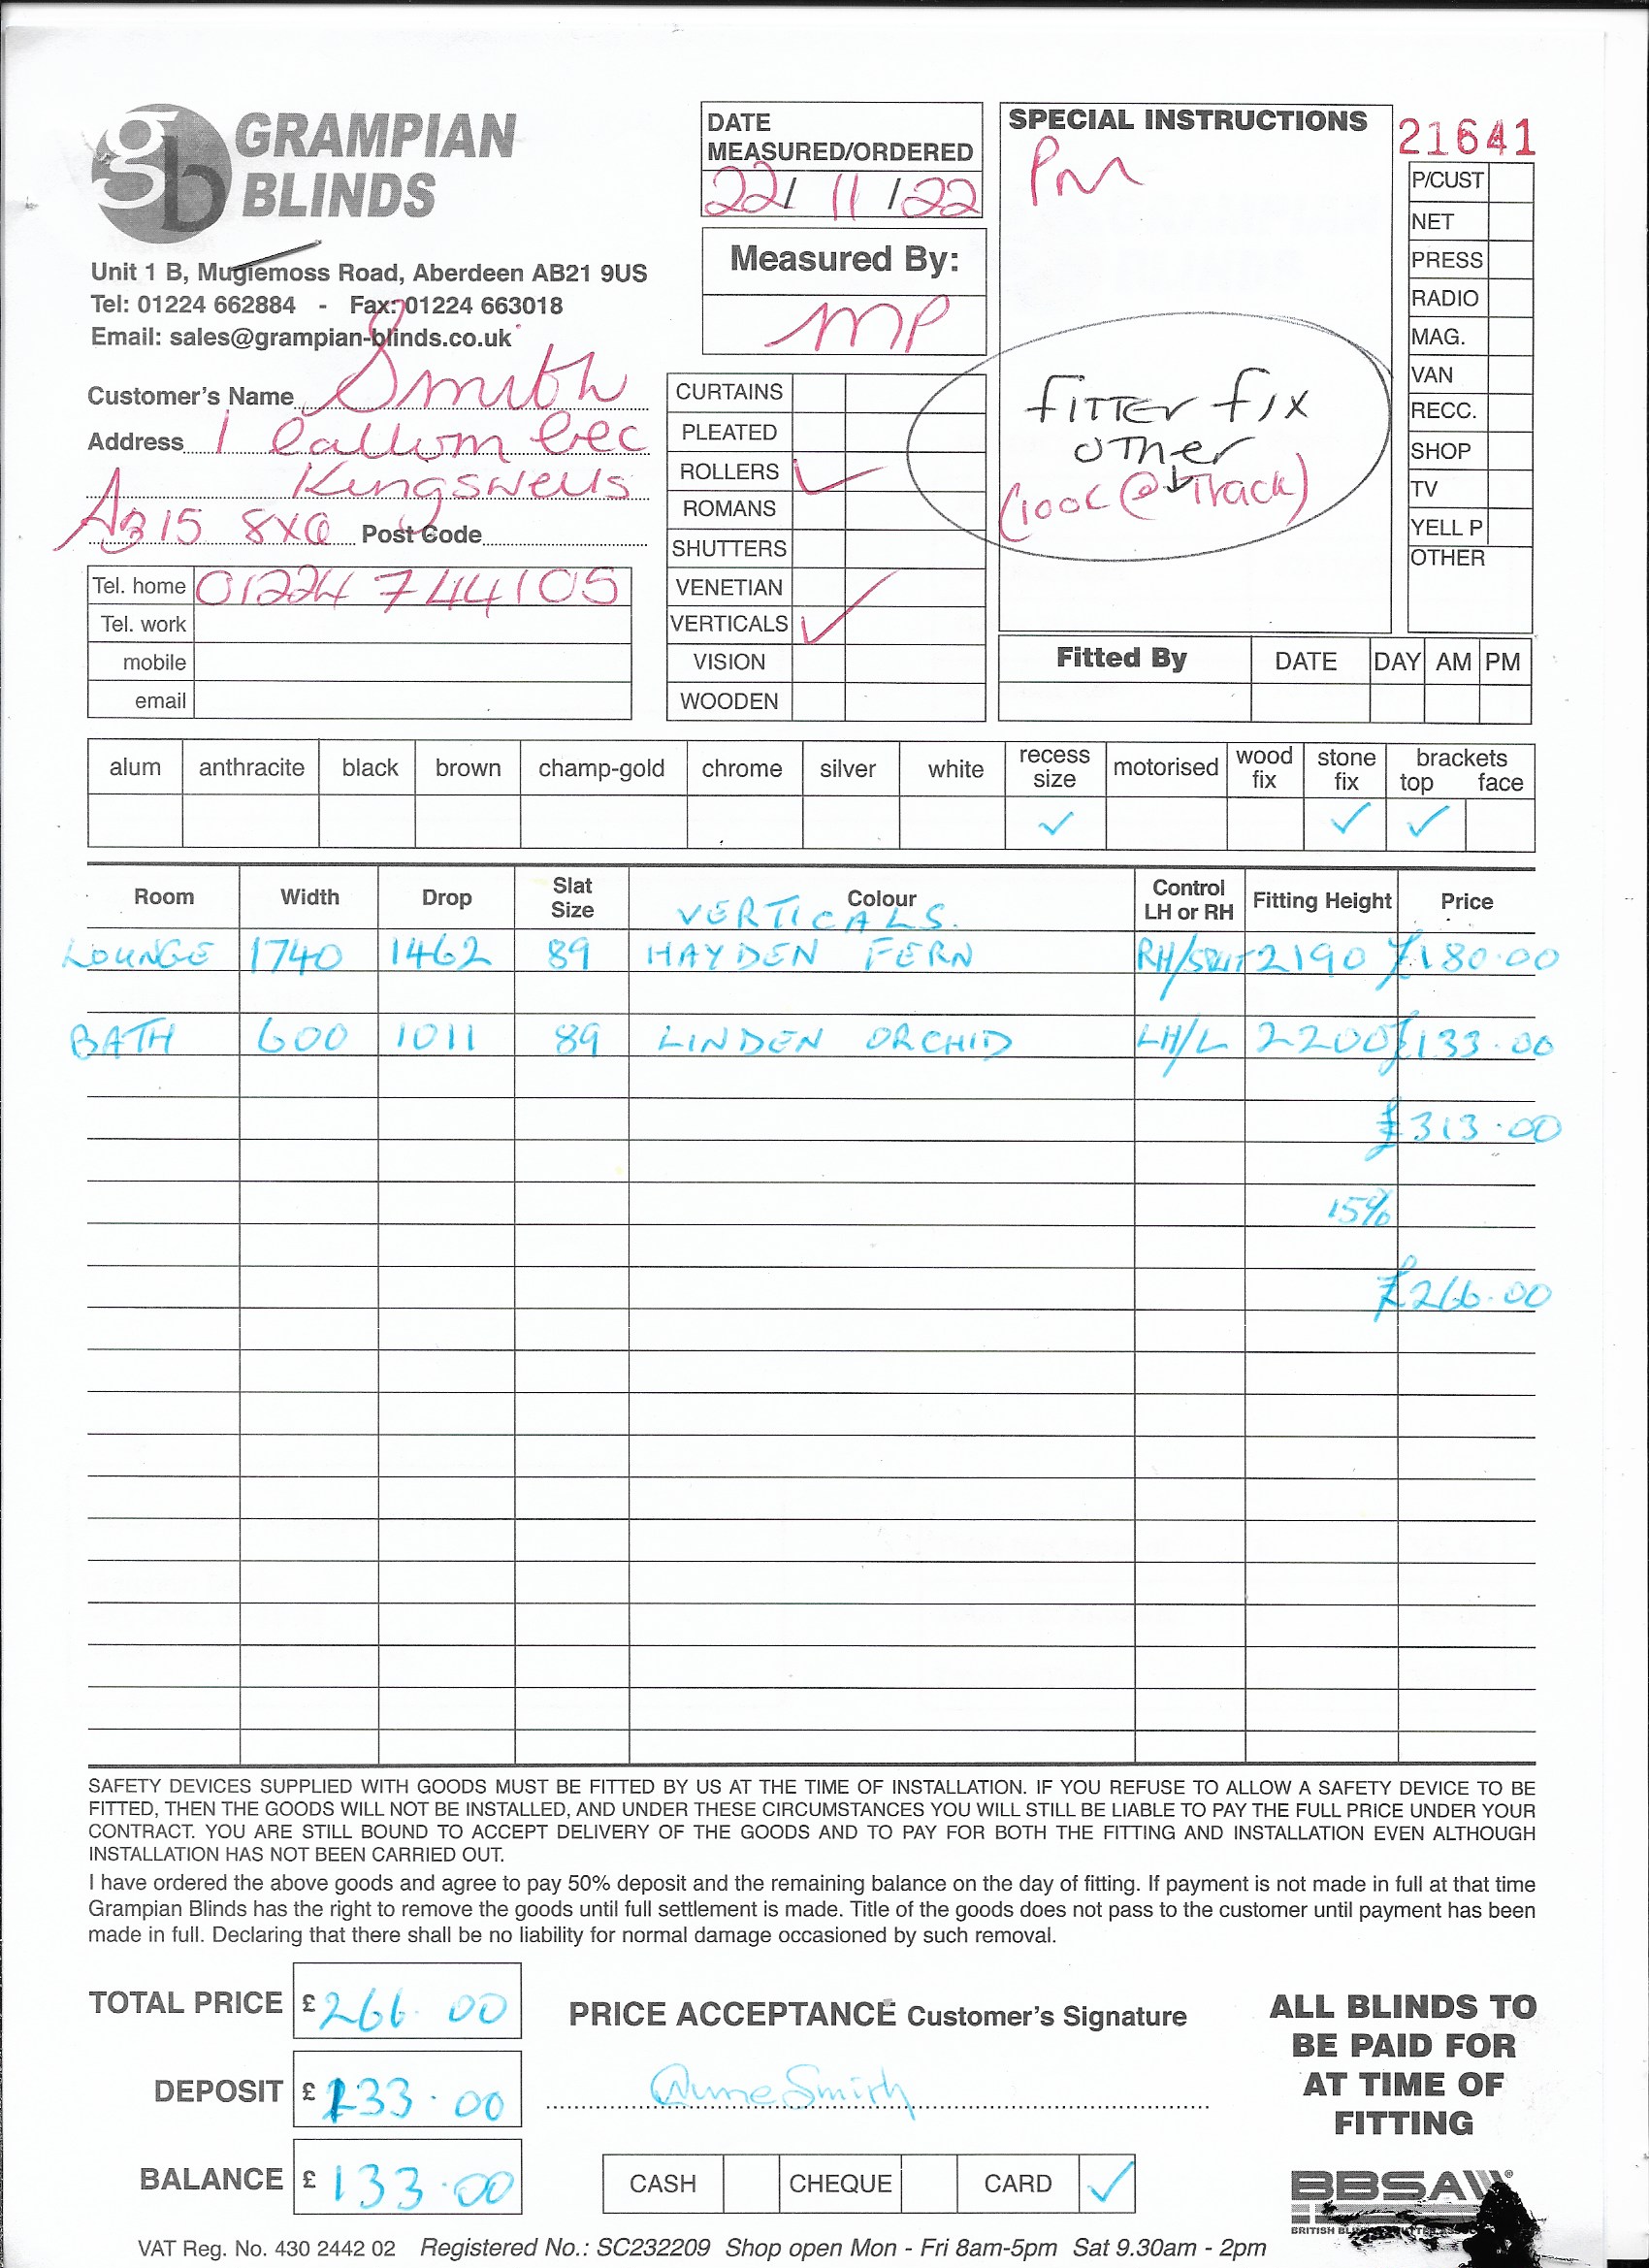 gb GRAMPIAN
BLINDS
Unit 1 B, Mugiemoss Road, Aberdeen AB21 9US
Tel: 01224 662884 - Fax: 01224 663018
Email: sales@grampian-blinds.co.uk
Customer's Name Smith
Address 1 Callum Cres
Kingswells
AB15 8XQ Post Code
Tel. home 01224 744105
Tel. work
mobile
email
DATE
MEASURED/ORDERED
22/ 11 /22
Measured By:
MP
CURTAINS
PLEATED
ROLLERS ✓
ROMANS
SHUTTERS
VENETIAN
VERTICALS ✓
VISION
WOODEN
SPECIAL INSTRUCTIONS
Pm
fITTEr fIX
OTHer
(look @ Track)
21641
P/CUST
NET
PRESS
RADIO
MAG.
VAN
RECC.
SHOP
TV
YELL P
OTHER
Fitted By DATE DAY AM PM
alum anthracite black brown champ-gold chrome silver white recess size motorised wood fix stone fix brackets top face
✓ ✓ ✓
Room Width Drop Slat Size Colour Control LH or RH Fitting Height Price
VERTICALS.
LOUNGE 1740 1462 89 HAYDEN FERN RH/SPLIT 2190 £180.00
BATH 600 1011 89 LINDEN ORCHID LH/L 2200 £133.00
£313.00
15%
£266.00
SAFETY DEVICES SUPPLIED WITH GOODS MUST BE FITTED BY US AT THE TIME OF INSTALLATION. IF YOU REFUSE TO ALLOW A SAFETY DEVICE TO BE
FITTED, THEN THE GOODS WILL NOT BE INSTALLED, AND UNDER THESE CIRCUMSTANCES YOU WILL STILL BE LIABLE TO PAY THE FULL PRICE UNDER YOUR
CONTRACT. YOU ARE STILL BOUND TO ACCEPT DELIVERY OF THE GOODS AND TO PAY FOR BOTH THE FITTING AND INSTALLATION EVEN ALTHOUGH
INSTALLATION HAS NOT BEEN CARRIED OUT.
I have ordered the above goods and agree to pay 50% deposit and the remaining balance on the day of fitting. If payment is not made in full at that time
Grampian Blinds has the right to remove the goods until full settlement is made. Title of the goods does not pass to the customer until payment has been
made in full. Declaring that there shall be no liability for normal damage occasioned by such removal.
TOTAL PRICE £266.00
DEPOSIT £133.00
BALANCE £133.00
PRICE ACCEPTANCE Customer's Signature
Smith
CASH CHEQUE CARD ✓
ALL BLINDS TO
BE PAID FOR
AT TIME OF
FITTING
BBSA
BRITISH
VAT Reg. No. 430 2442 02 Registered No.: SC232209 Shop open Mon - Fri 8am-5pm Sat 9.30am - 2pm